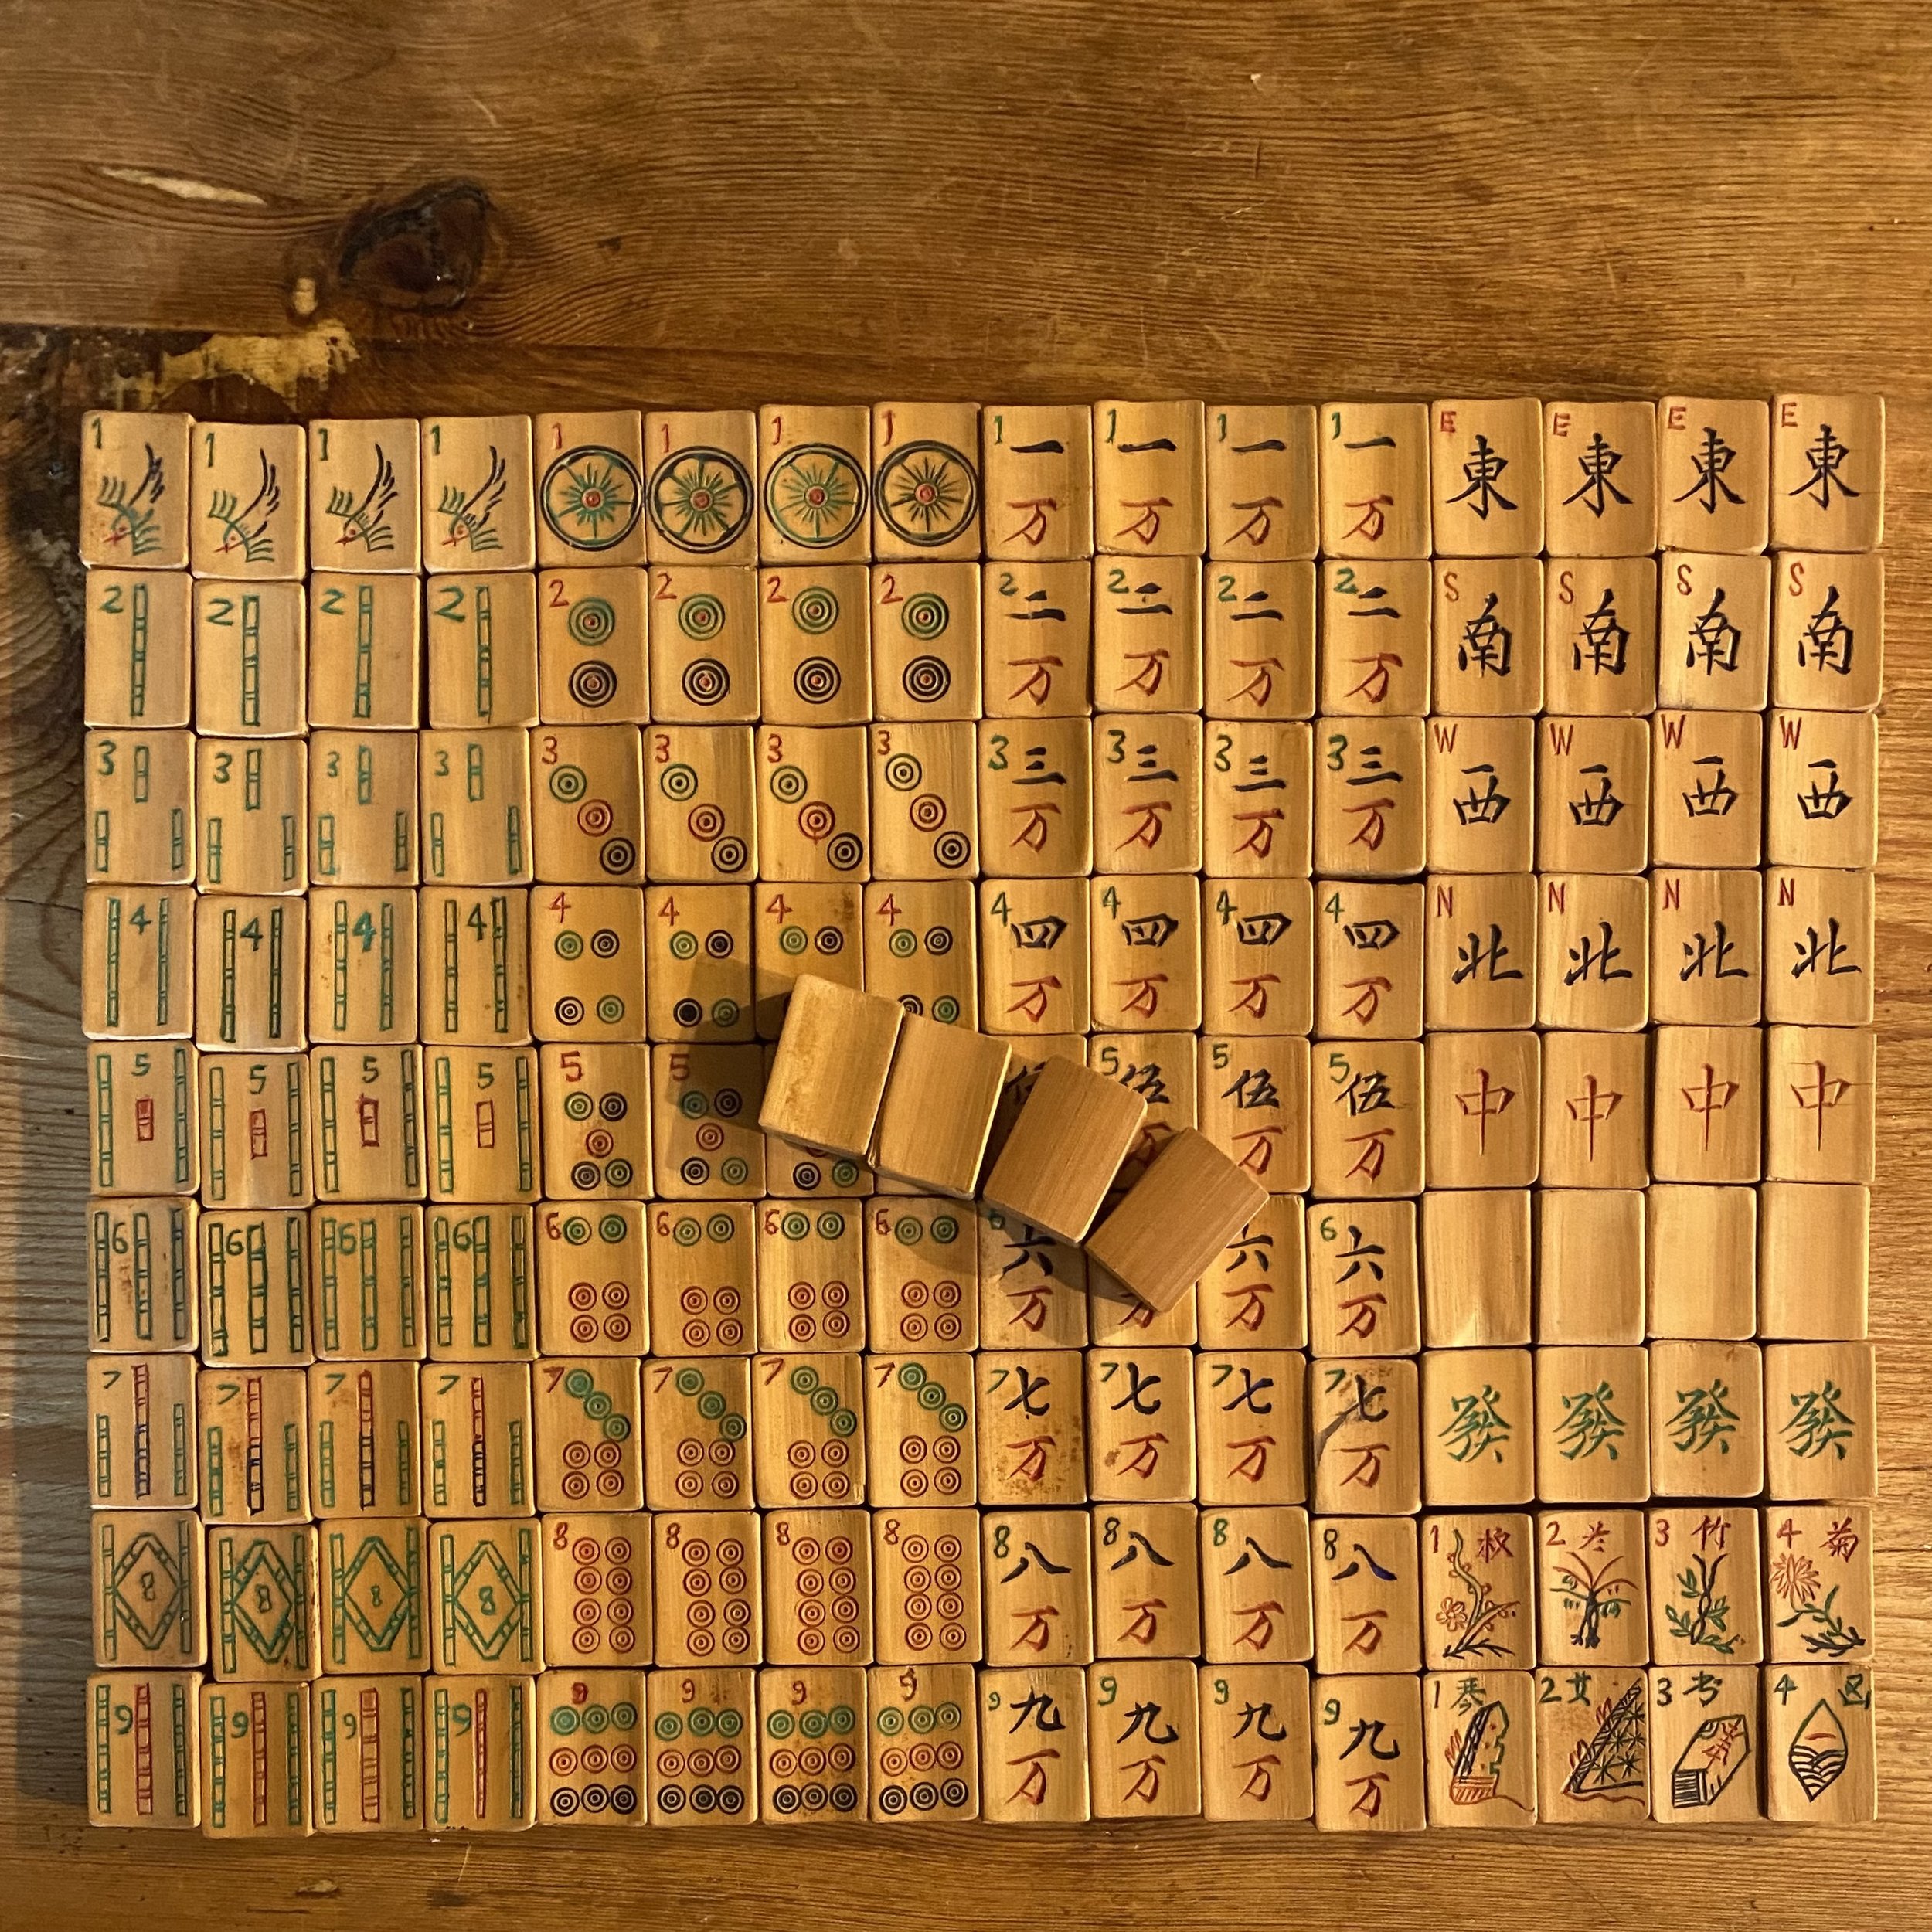 1 1 1 1 1 1 1 1 1 一 1 一 1 一 1 一 E E E E
万 万 万 万 東 東 東 東
2 2 2 2 2 2 2 2 2 二 2 二 2 二 2 二 S S S S
万 万 万 万 南 南 南 南
3 3 3 3 3 3 3 3 3 三 3 三 3 三 3 三 W W W W
万 万 万 万 西 西 西 西
4 4 4 4 4 4 4 4 4 四 4 四 4 四 4 四 N N N N
万 万 万 万 北 北 北 北
5 5 5 5 5 5 5 伍 5 伍 5 伍 中 中 中 中
万 万
6 6 6 6 6 6 6 6 六 六 6 六
万 万 万 万
7 7 7 7 7 7 7 7 7 七 7 七 7 七 7 七
万 万 万 万 發 發 發 發
8 8 8 8 8 8 8 8 8 八 8 八 8 八 8 八 1 2 兰 3 竹 4 菊
万 万 万 万
9 9 9 9 9 9 9 9 9 九 9 九 9 九 9 九 1 琴 2 3 书 4
万 万 万 万